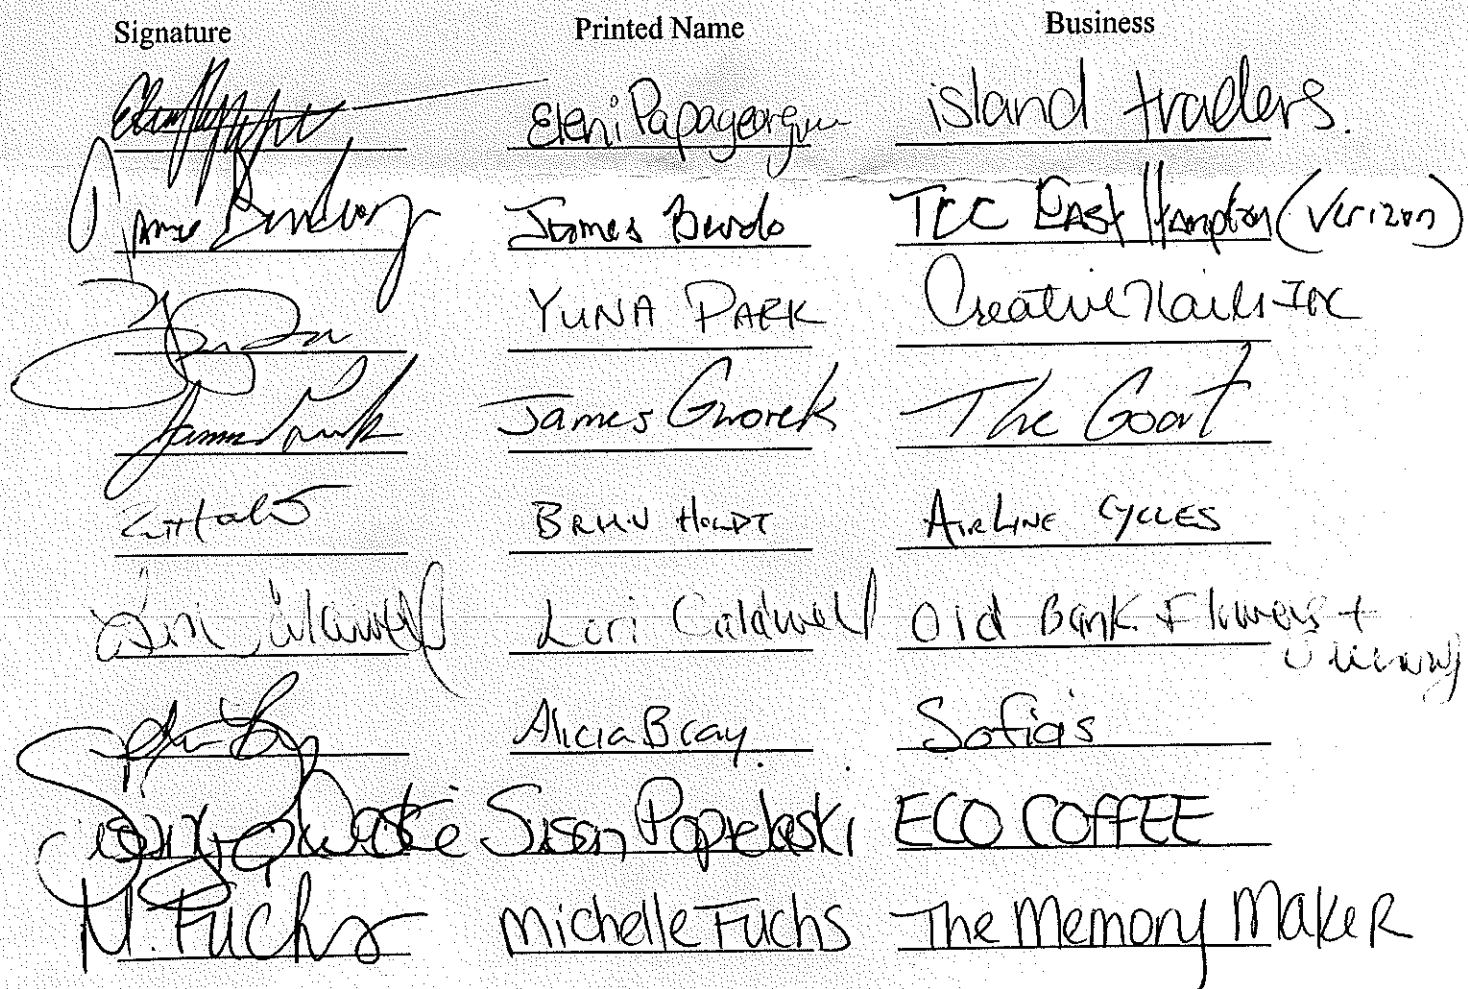 Signature Printed Name Business
Eleni Papageorgiou island traders.
James TCC East Hampton (Verizon)
YUNA PARK Creative Nails Inc
James Gworek The Goat
HOLDT AIRLINE CYCLES
Lori Caldwell Lori Caldwell Old Bank Flowers +
Alicia Bray Sofia's
Susan Popielaski ECO COFFEE
M. Fuchs Michelle Fuchs The Memory Maker